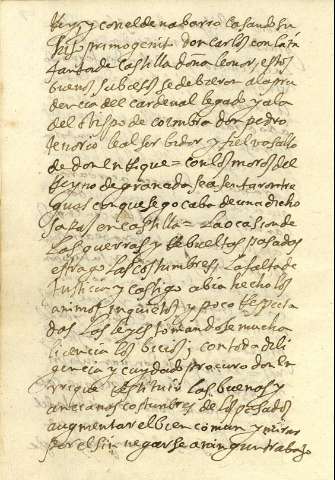 Reyes y con el de nabarra casando su
hijo primogenito don carlos con la in
fanta de castilla doña leonor, estos
buenos subcesos se debieron a la pru
dencia del cardenal legado y a la
del obispo de coimbra don pedro
tenorio leal serbidor y fiel vasallo
de don enRique = con los moros del
Reyno de granada se asentaron tre
guas con que se goço de una dicho
sa paz en castilla = La ocasion de
las guerras y Rebueltas pasadas
estrago las costumbres, la falta de
Justicia y castigo abia hecho los
animos inquietos y poco Respeta
das las leyes tomandose mucha
licencia los bicios; con toda dili
gencia y cuydado procuro don en
rrique Restituir las buenas y
ancianas costumbres de los pasados
augmentar el bien comun y mirar
por el sin negarse a ningun trabajo